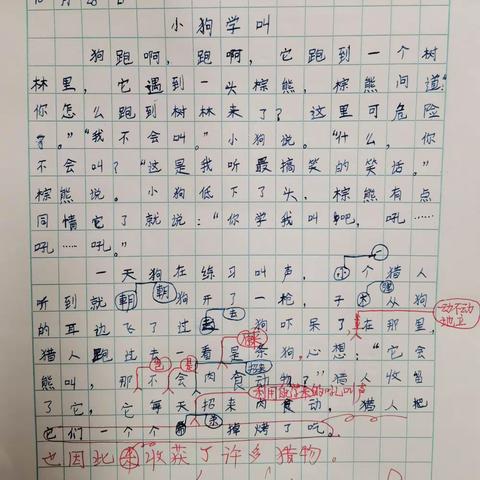 10月28日
小狗学叫
狗跑啊，跑啊，它跑到一个树
林里，它遇到一头棕熊，棕熊问道："
你怎么跑到树林来了？这里可危险
了。""我不会叫。"小狗说。"什么，你
不会叫？"这是我听最搞笑的笑话。"
棕熊说。小狗低下了头，棕熊有点
同情它了就说："你学我叫吧，吼……
吼……吼。"
一天狗在练习叫声，小个猎人
一
听到就朝狗开了一枪，子从狗
朝
弹
的耳边飞了过去狗吓呆了在那里，
去
动不动
地
猎人跑过去一看是条狗，心想："它会
熊叫，那不会肉食动物？"猎人收留
招来
利用学来的吼叫声
了它，它每天招来肉食动，猎人把
它们一个个杀掉烤了吃。
也因此收获了许多猎物。